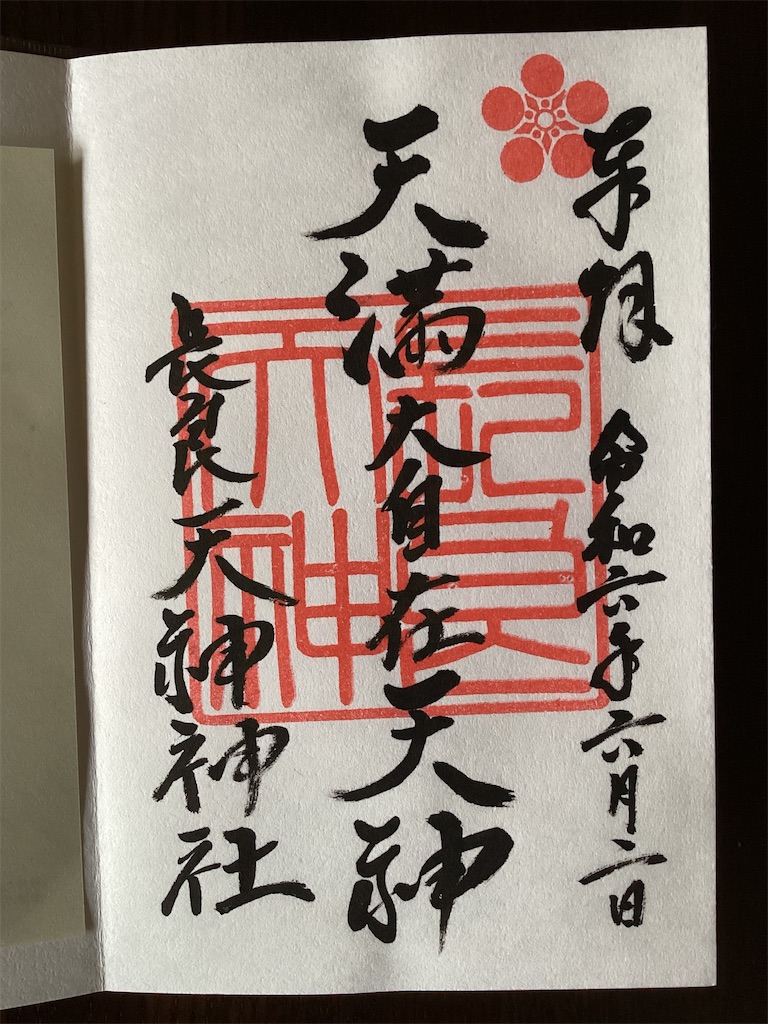 奉拝 令和六年六月二日
天満大自在天神
長良天神神社
天神